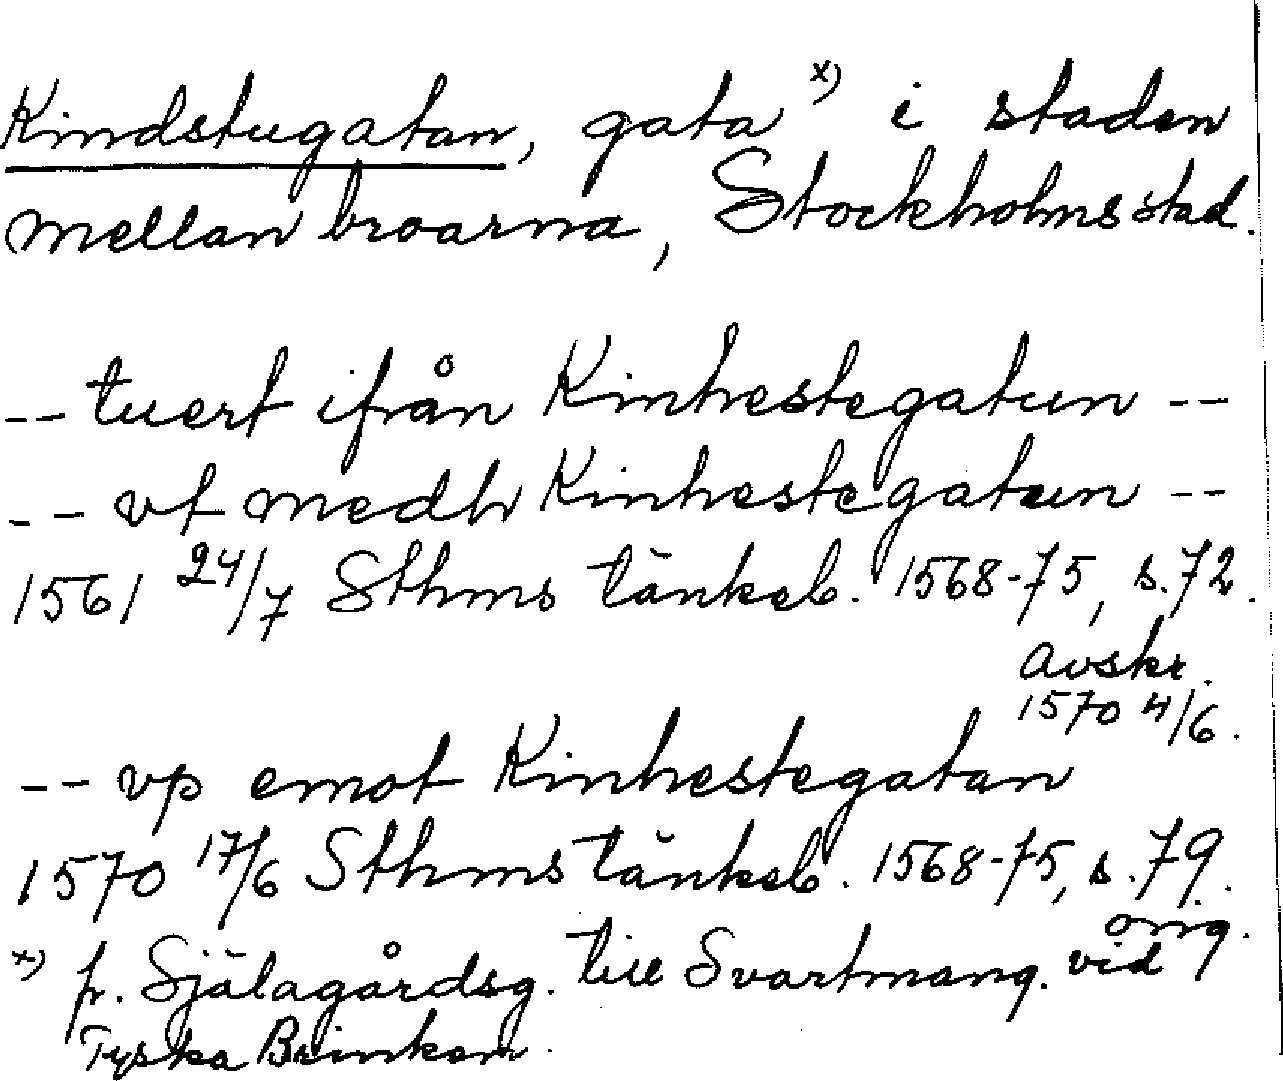 Kindstugatan, gata x) i staden
mellan broarna, Stockholms stad.
-- tuert ifrån Kinhestegatun --
-- vt medh Kinhestegatun --
1561 24/7 Sthms tänkeb. 1568-75, s. 72.
Avskr.
1570 4/6.
-- vp emot Kinhestegatan
1570 17/6 Sthms tänkeb. 1568-75, s. 79.
orig.
x) fr. Själagårdsg. till Svartmang. vid
Tyska Brinken.